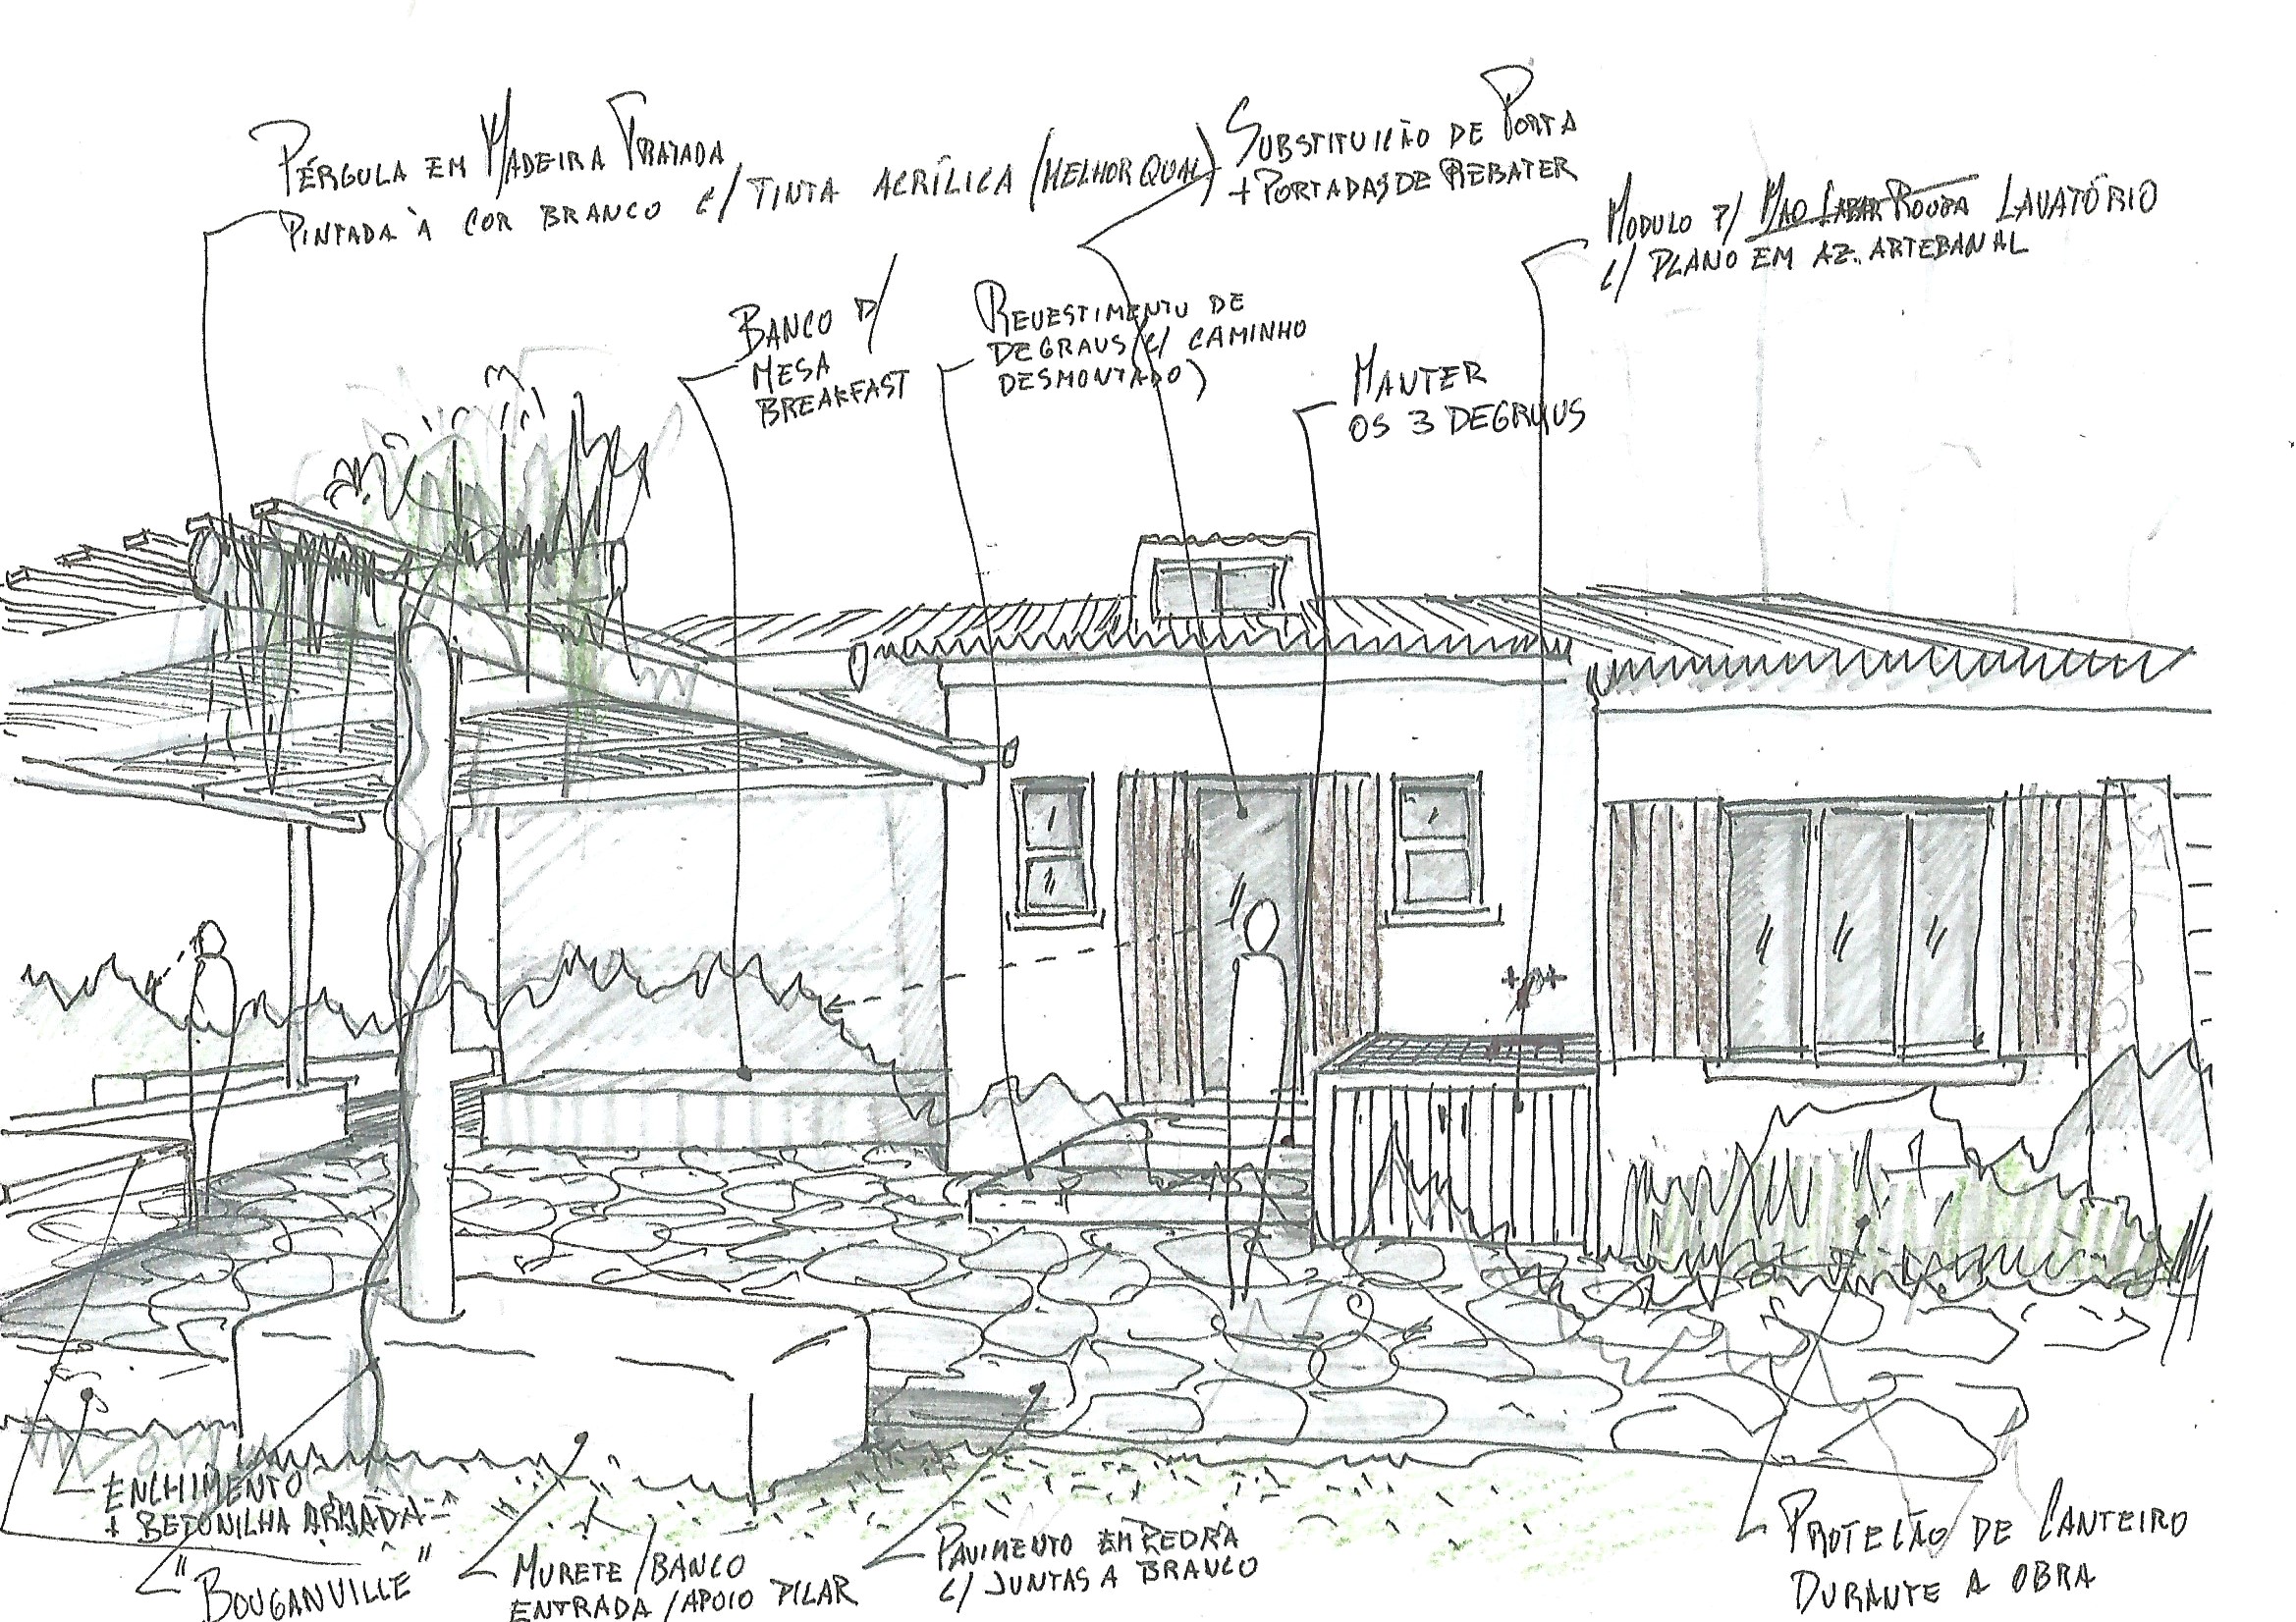 PÉRGULA EM MADEIRA TRATADA
PINTADA À COR BRANCO C/ TINTA ACRÍLICA (MELHOR QUAL)
SUBSTITUIÇÃO DE PORTA
+ PORTADAS DE REBATER
MODULO P/ LAVATÓRIO
C/ PLANO EM AZ. ARTEBANAL
BANCO P/
MESA
BREAKFAST
REVESTIMENTO DE
DEGRAUS (C/ CAMINHO
DESMONTADO)
MANTER
OS 3 DEGRAUS
ENCHIMENTO
+ BETONILHA ARMADA
"BOUGANVILLE"
MURETE / BANCO
ENTRADA / APOIO PILAR
PAVIMENTO EM PEDRA
C/ JUNTAS A BRANCO
PROTEÇÃO DE CANTEIRO
DURANTE A OBRA